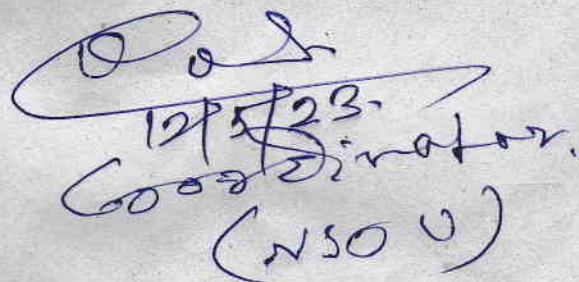 12/5/23.
Coordinator.
(NSOU)